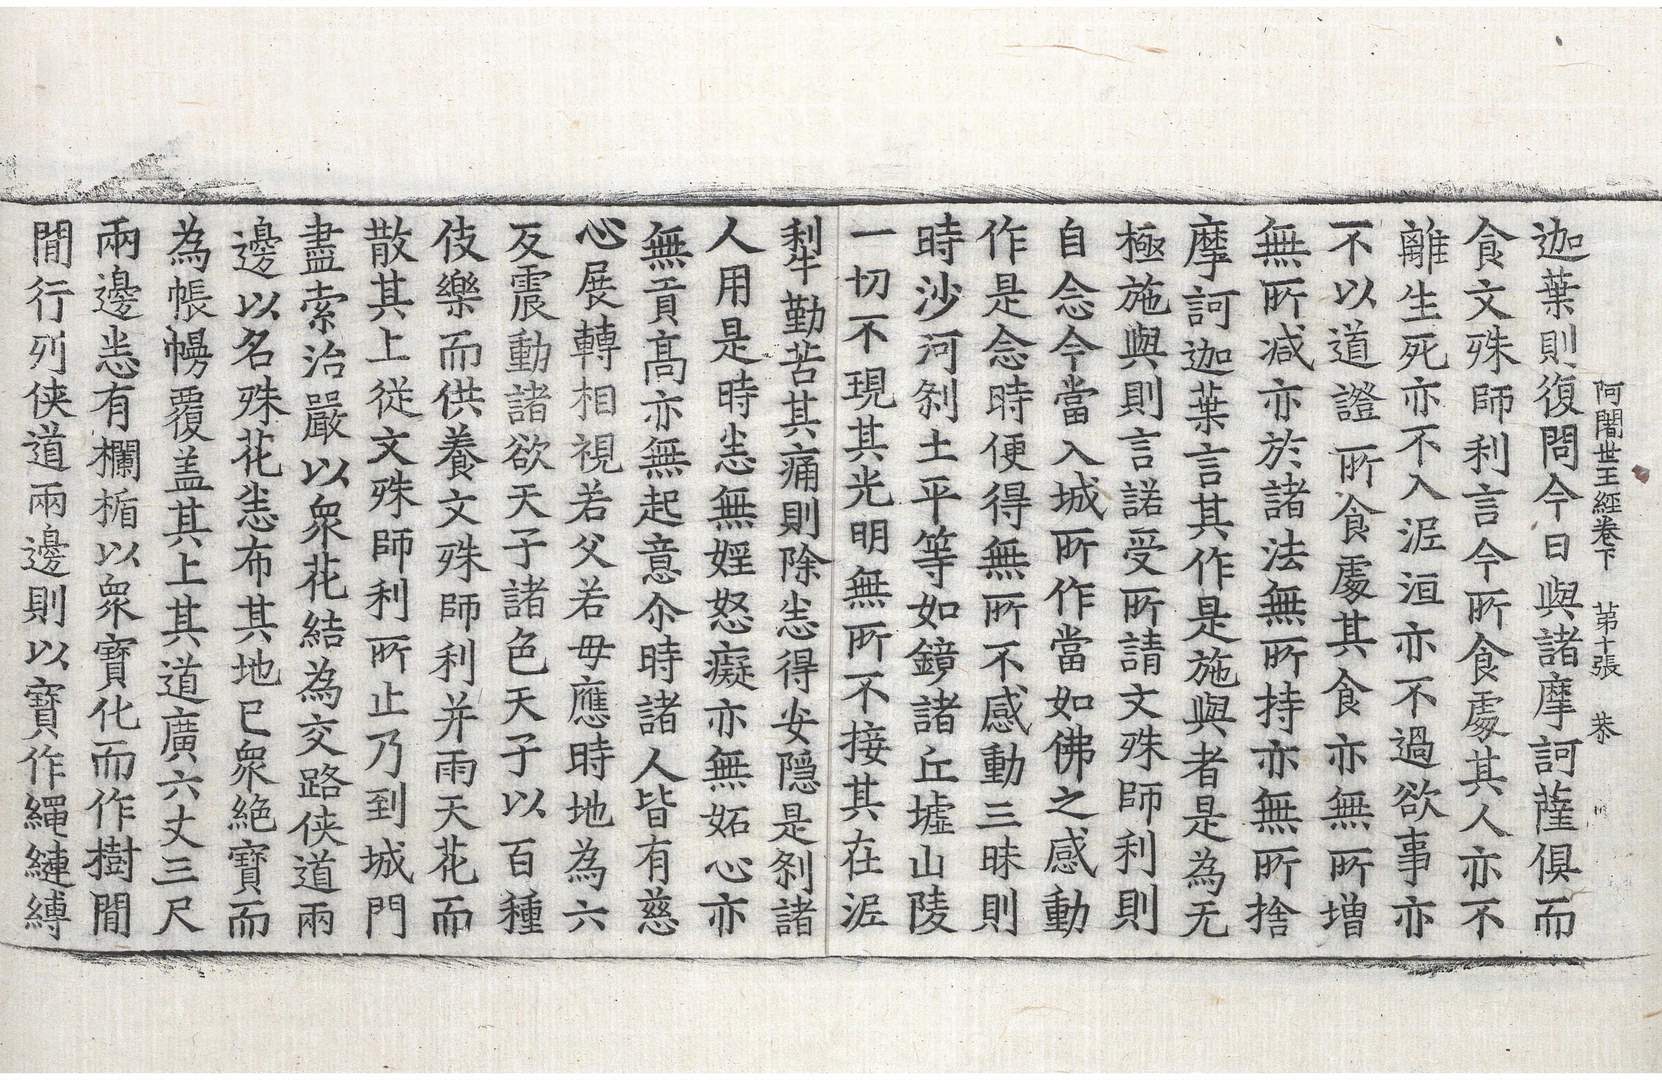 阿闍世王經卷下　第十張　恭
迦葉則復問今日與諸摩訶薩俱而
食文殊師利言今所食處其人亦不
離生死亦不入泥洹亦不過欲事亦
不以道證所食處其食亦無所增
無所减亦於諸法無所持亦無所捨
摩訶迦葉言其作是施與者是為无
極施與則言諾受所請文殊師利則
自念今當入城所作當如佛之感動
作是念時便得無所不感動三昧則
時沙河刹土平等如鏡諸丘墟山陵
一切不現其光明無所不接其在泥
犁勤苦其痛則除恙得安隱是刹諸
人用是時恙無婬怒癡亦無妬心亦
無貢高亦無起意尒時諸人皆有慈
心展轉相視若父若母應時地為六
反震動諸欲天子諸色天子以百種
伎樂而供養文殊師利并雨天花而
散其上從文殊師利所止乃到城門
盡索治嚴以衆花結為交路俠道兩
邊以名殊花恙布其地已衆絶寶而
為帳幔覆盖其上其道廣六丈三尺
兩邊恙有欄楯以衆寶化而作樹間
間行列俠道兩邊則以寶作繩縺縛